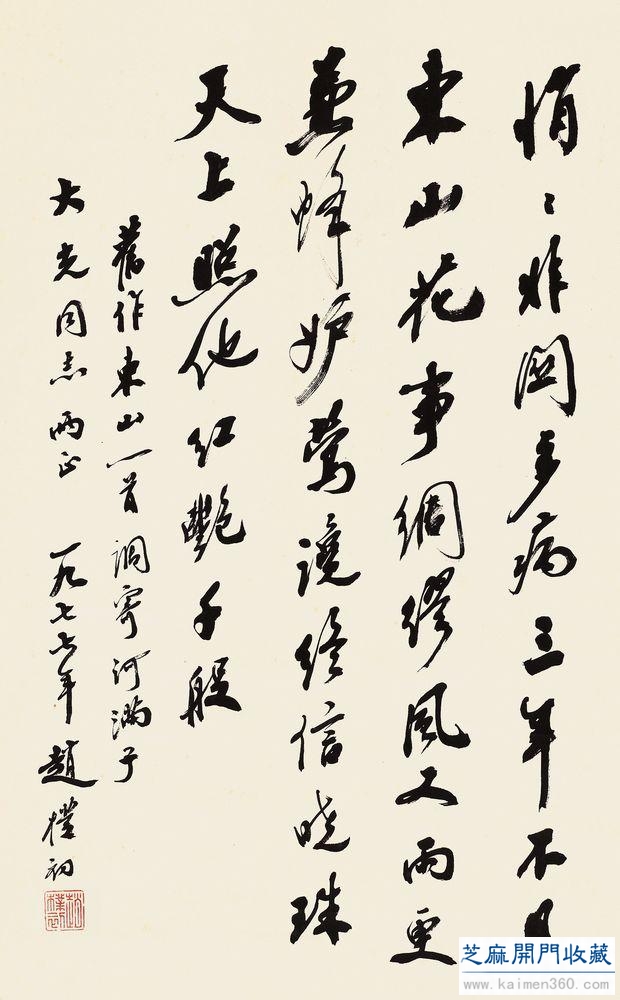 悄〻非關多病三年不見
東山花事綢繆風又雨更
兼蜂妒鶯讒終信曉珠
天上照他紅艷千般
舊作東山一首調寄河滿子
大光同志哂正 一九七七年 趙樸初
趙樸初
芝麻開門收藏
www.kaimen360.com